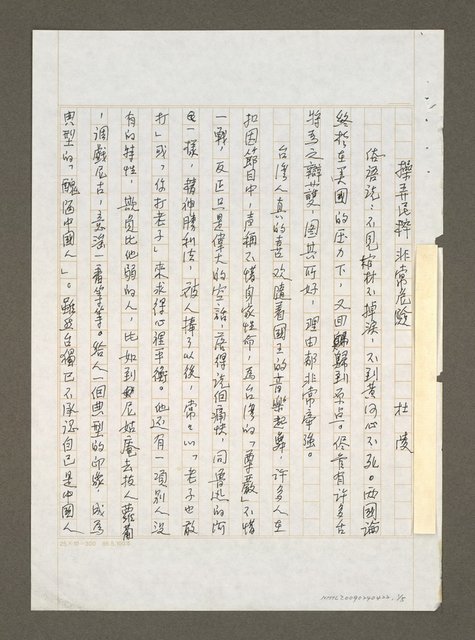 操弄民粹 非常危險 杜陵
俗語說:不見棺材不掉淚,不到黃河心不死。兩國論
終於在美國的壓力下,又回歸到原點。儘管有許多舌
將為之辯護,因其所好,理由都非常牽強。
台灣人真的喜歡隨著國王的音樂起舞,許多人在
扣因節目中,聲稱不惜自家性命,為台灣的「尊嚴」不惜
一戰,反正只是偉大的空話,落得說個痛快,同魯迅的阿
Q一樣,精神勝利法,被人揍了以後,常々以「老子也敢
打」或「你打老子」來求得心裡平衡。他還有一項別人沒
有的特性,欺負比他弱的人,比如到尼姑庵去拔人蘿蔔
,調戲尼古,意淫一番等等。給人一個典型的印象,成為
典型的「醜陋中國人」。雖然台獨已不承認自己是中國人
NMTL20090290422, 1/5